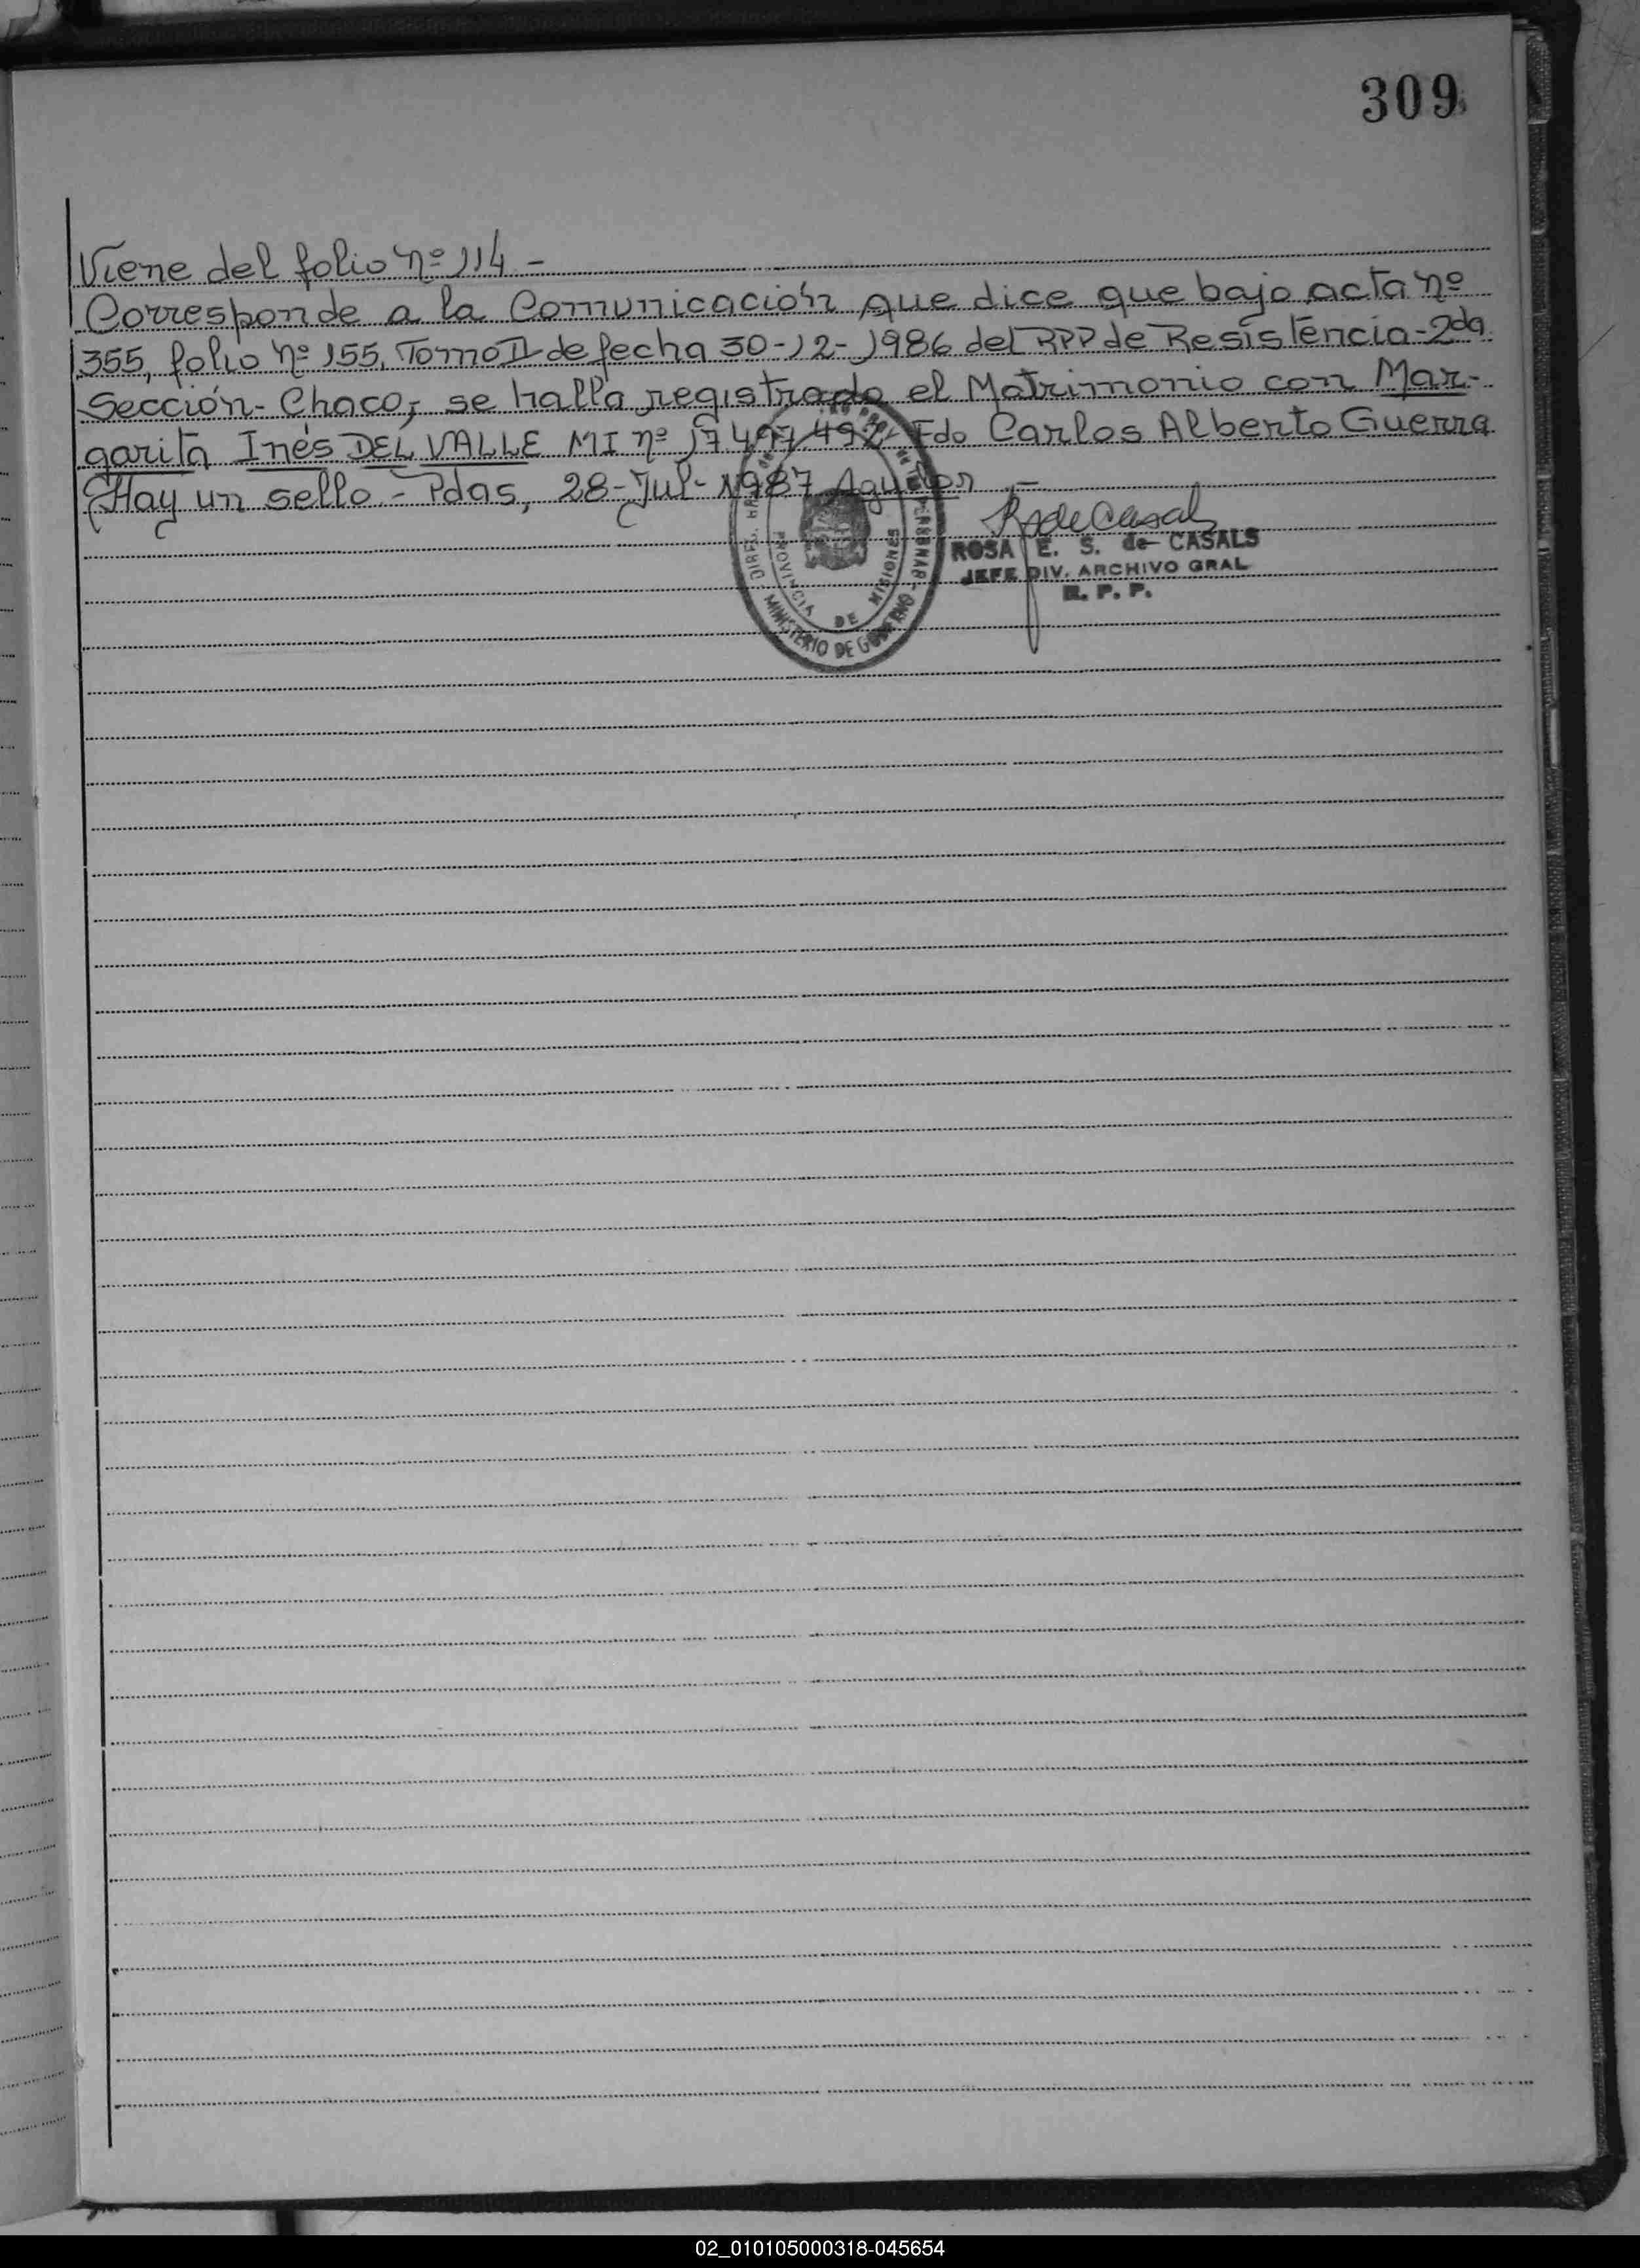 309
Viene del folio nº 114 -
Corresponde a la Comunicación que dice que bajo acta nº
355, folio nº 155, Tomo II de fecha 30-12-1986 del RPP de Resistencia-2da
Sección- Chaco, se halla registrado el Matrimonio con Mar-
garita Inés DEL VALLE MI nº 17.497.492- Fdo Carlos Alberto Guerra
Hay un sello.- Pdas, 28-Jul-1987
R de Casals
ROSA E. S. de CASALS
JEFE DIV. ARCHIVO GRAL
R. P. P.
PROVINCIA DE MISIONES
MINISTERIO DE GOBIERNO
02_010105000318-045654